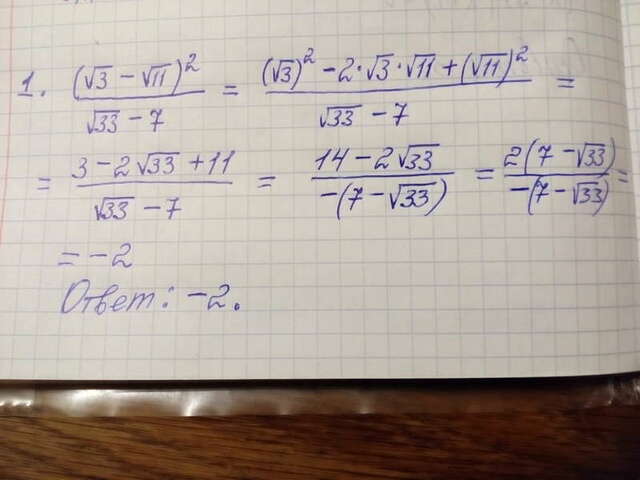 1. (√3 − √11)² / (√33 − 7) = ((√3)² − 2·√3·√11 + (√11)²) / (√33 − 7) =
= (3 − 2√33 + 11) / (√33 − 7) = (14 − 2√33) / (−(7 − √33)) = 2(7 − √33) / (−(7 − √33)) =
= −2
Ответ: −2.